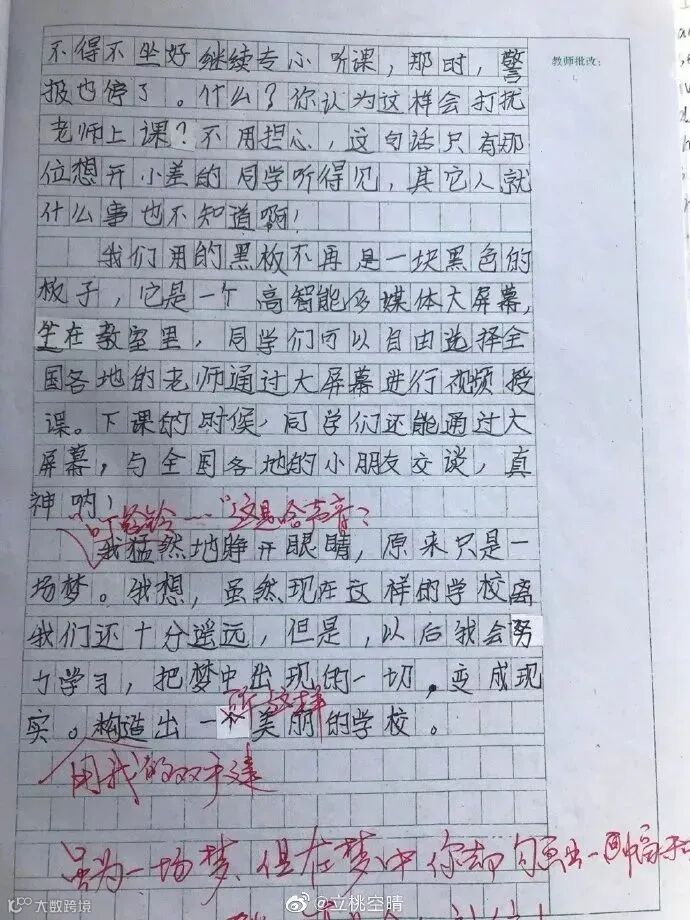 不得不坐好继续专心听课，那时，警
教师批改：
报也停了。什么？你认为这样会打扰
老师上课？不用担心，这句话只有那
位想开小差的同学听得见，其它人就
什么事也不知道啊！
我们用的黑板不再是一块黑色的
板子，它是一个高智能多媒体大屏幕，
坐在教室里，同学们可以自由选择全
国各地的老师通过大屏幕进行视频授
课。下课的时候，同学们还能通过大
屏幕，与全国各地的小朋友交谈，真
神呐！
"叮铃铃……"这是啥声音？
我猛然地睁开眼睛，原来只是一
场梦。我想，虽然现在这样的学校离
我们还十分遥远，但是，以后我会努
力学习，把梦中出现的一切，变成现
所这样
实。构造出一个美丽的学校。
用我的双手建
虽为一场梦，但在梦中你却勾画出一
大数跨境
@立桃空晴